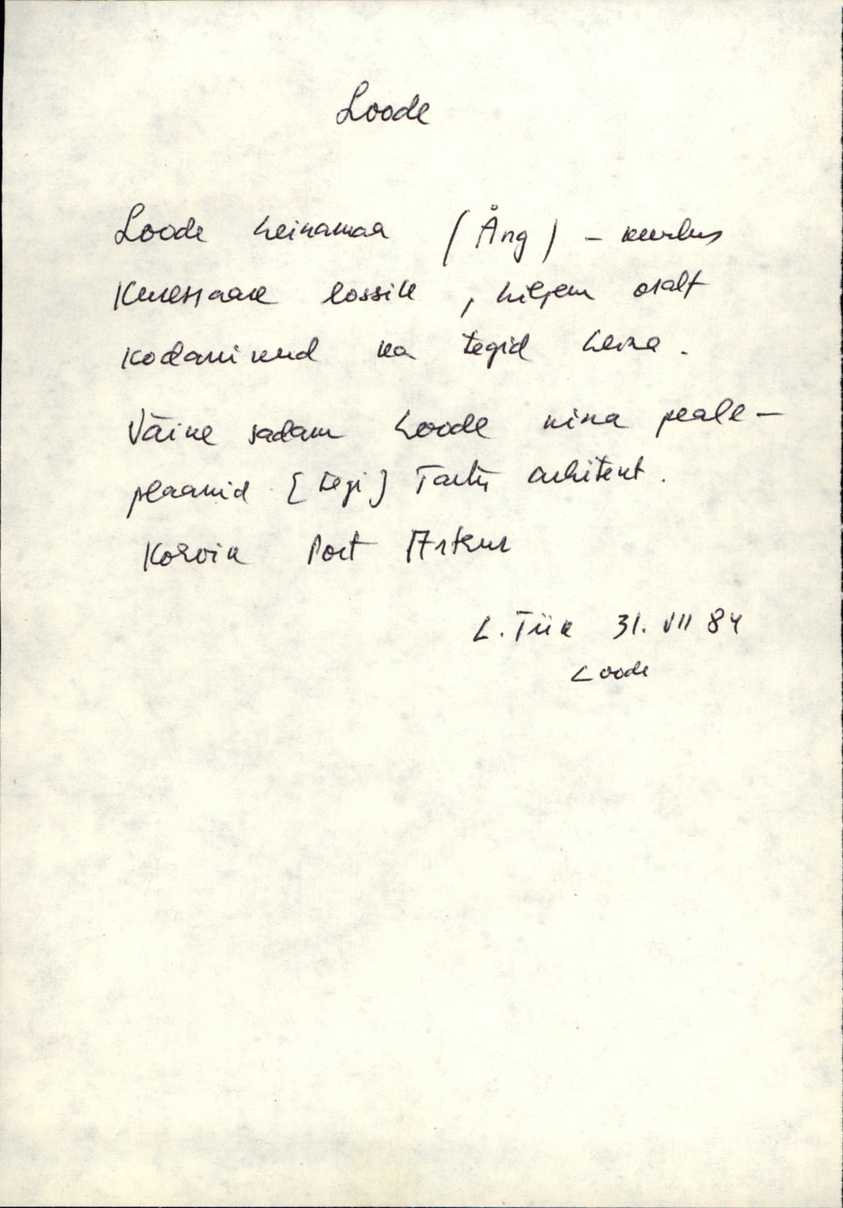 Loode
Loode heinamaa (Ång) – kuulus
Kuressaare lossile, hiljem osalt
kodanikud ka tegid heina.
Väike sadam Loode nina peale –
plaanid [tegi] Tartu arhitekt.
Port Artur
L. Tiik 31. VII 84
Loode